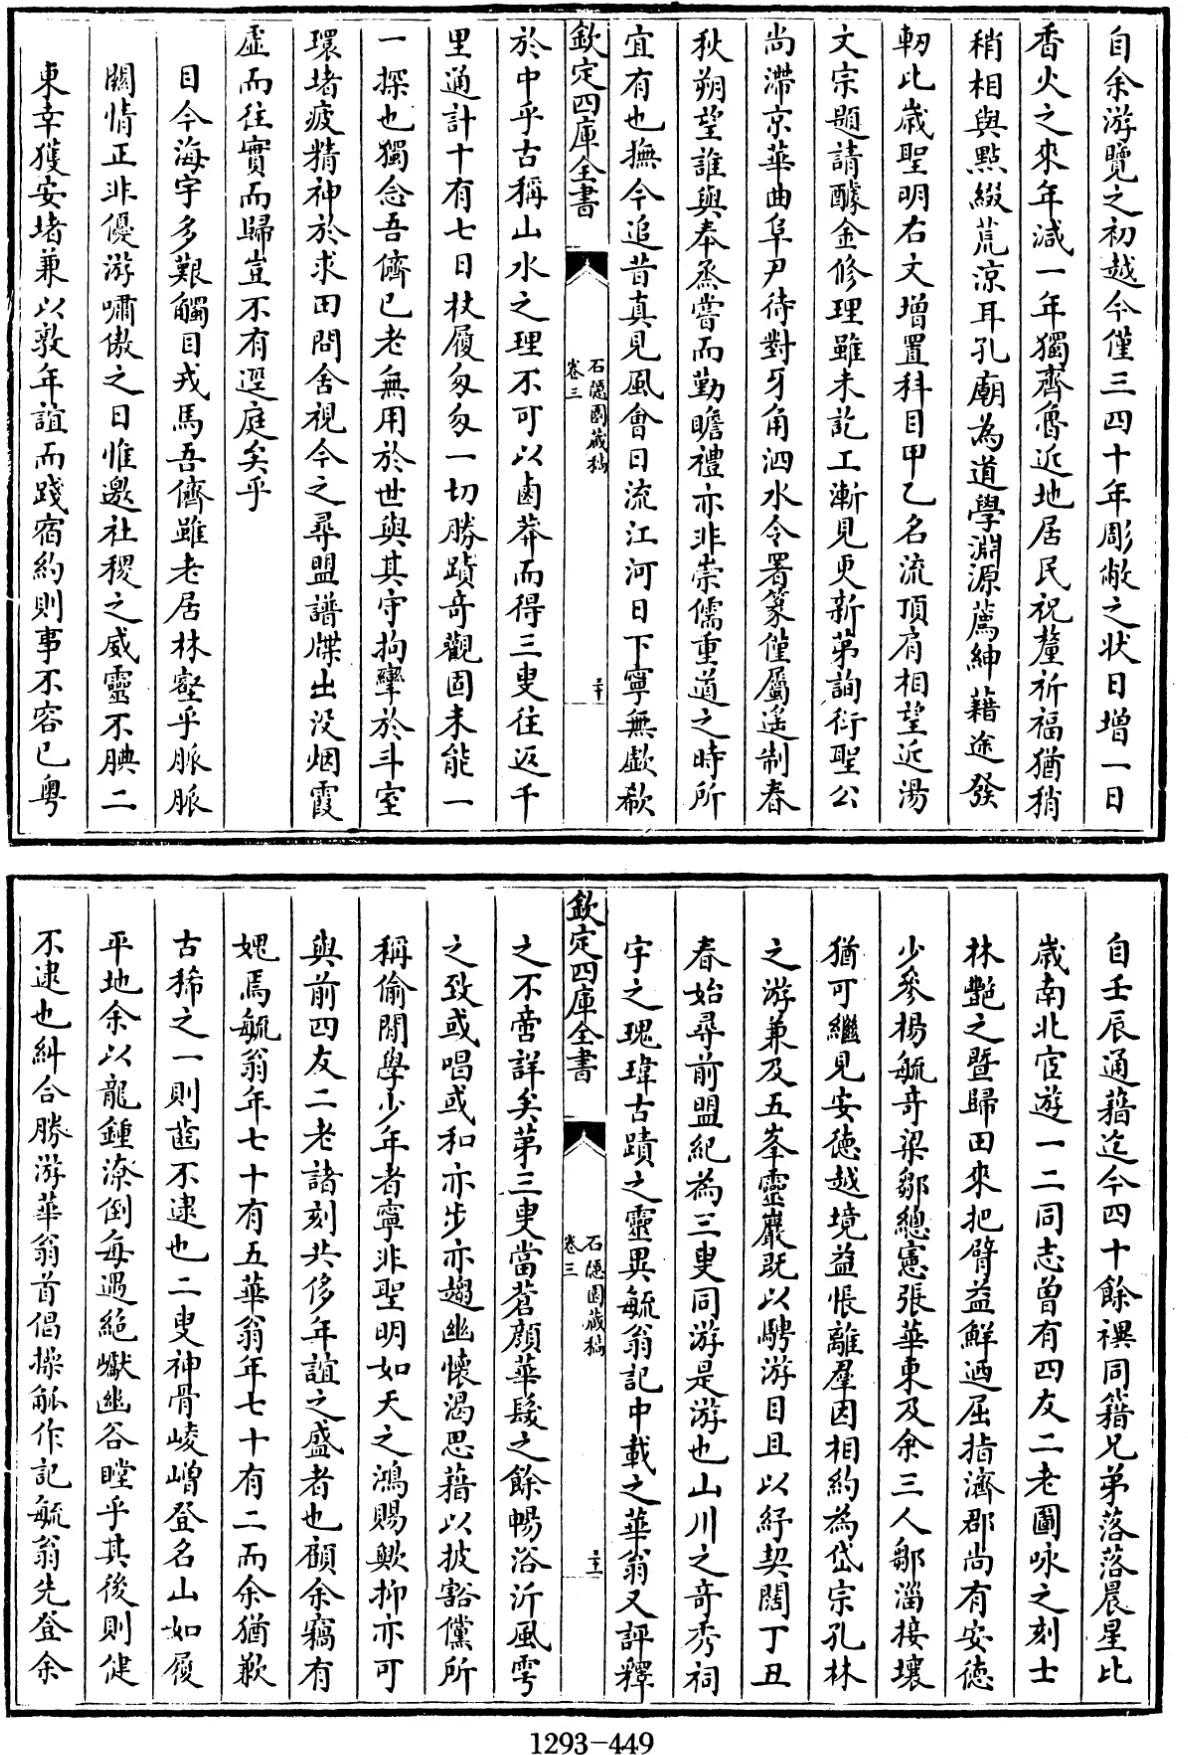 自余游覽之初越今僅三四十年彫敝之狀日增一日
香火之來年減一年獨齊魯近地居民祝釐祈福猶稍
稍相與點綴荒涼耳孔廟為道學淵源薦紳藉途發
軔比歲聖明右文增置科目甲乙名流頂肩相望近湯
文宗題請醵金修理雖未訖工漸見更新第詢衍聖公
尚滯京華曲阜尹待對牙角泗水令署篆僅屬遙制春
秋朔望誰與奉烝嘗而勤瞻禮亦非崇儒重道之時所
宜有也撫今追昔真見風會日流江河日下寧無歔欷
欽定四庫全書
石隱園藏稿
卷三
二十
於中乎古稱山水之理不可以鹵莽而得三叟往返千
里通計十有七日杖履匆匆一切勝蹟奇觀固未能一
一探也獨念吾儕已老無用於世與其守拘攣於斗室
環堵疲精神於求田問舍視今之尋盟譜牒出沒烟霞
虛而往實而歸豈不有逕庭矣乎
目今海宇多艱觸目戎馬吾儕雖老居林壑乎脈脈
關情正非優游嘯傲之日惟邀社稷之威靈不腆二
東幸獲安堵兼以敦年誼而踐宿約則事不容已粵
自壬辰通籍迄今四十餘禩同籍兄弟落落晨星比
歲南北宦遊一二同志曾有四友二老圖咏之刻士
林艷之暨歸田來把臂益鮮迺屈指濟郡尚有安德
少參楊毓奇梁鄒總憲張華東及余三人鄒淄接壤
猶可繼見安德越境益悵離羣因相約為岱宗孔林
之游兼及五峯靈巖既以騁游目且以紓契闊丁丑
春始尋前盟紀為三叟同游是游也山川之奇秀祠
宇之瑰瑋古蹟之靈異毓翁記中載之華翁又評釋
欽定四庫全書
石隱園藏稿
卷三
二十一
之不啻詳矣第三叟當蒼顏華髮之餘暢浴沂風雩
之致或唱或和亦步亦趨幽懷渴思藉以披豁儻所
稱偷閒學少年者寧非聖明如天之鴻賜歟抑亦可
與前四友二老諸刻共侈年誼之盛者也顧余竊有
媿焉毓翁年七十有五華翁年七十有二而余猶歉
古稀之一則齒不逮也二叟神骨崚嶒登名山如履
平地余以龍鍾潦倒每遇絕巘幽谷瞠乎其後則健
不逮也糾合勝游華翁首倡操觚作記毓翁先登余
1293-449